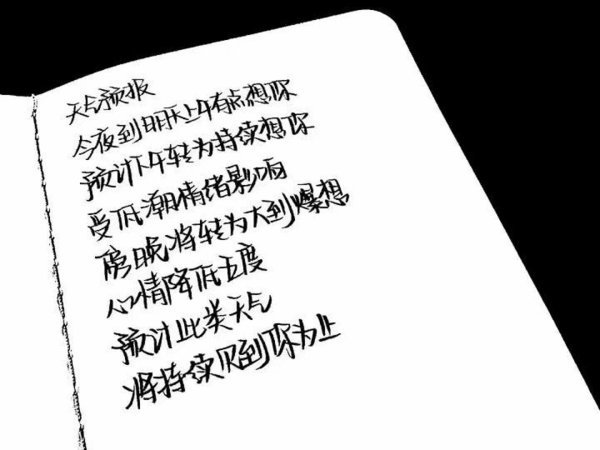 天气预报
今夜到明天上午有点想你
预计下午转为持续想你
受低潮情绪影响
傍晚将转为大到爆想
心情降低五度
预计此类天气
将持续见到你为止